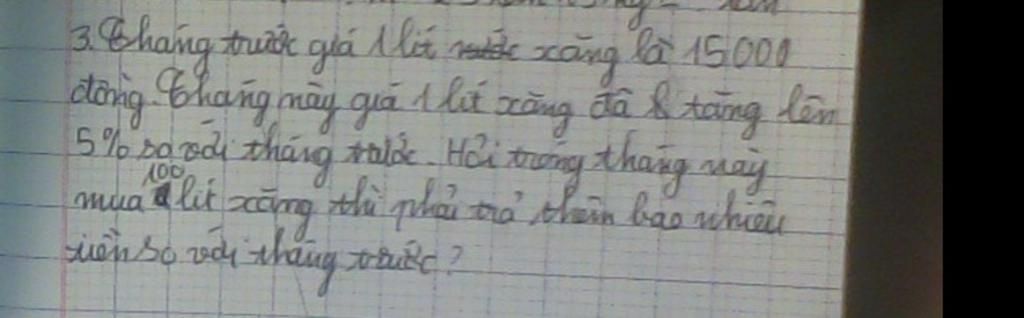 3. Tháng trước giá 1 lít xăng là 15000
đồng. Tháng này giá 1 lít xăng đã tăng lên
5% so với tháng trước. Hỏi trong tháng này
mua 100 lít xăng thì phải trả thêm bao nhiêu
tiền so với tháng trước?